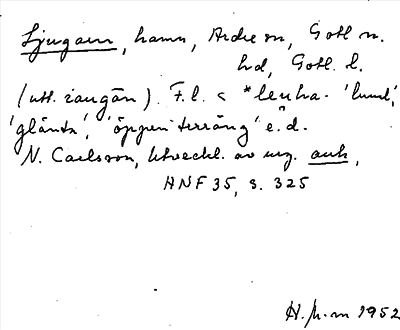 Ljugarn, hamn, Ardre sn, Gotl n.
hd, Gotl. l.
(utt. iaugān). F. l. < *leuha- 'lund',
'glänta', 'öppen terräng' e.d.
N. Carlsson, Utveckl. av urg. auh,
HNF 35, s. 325
1952